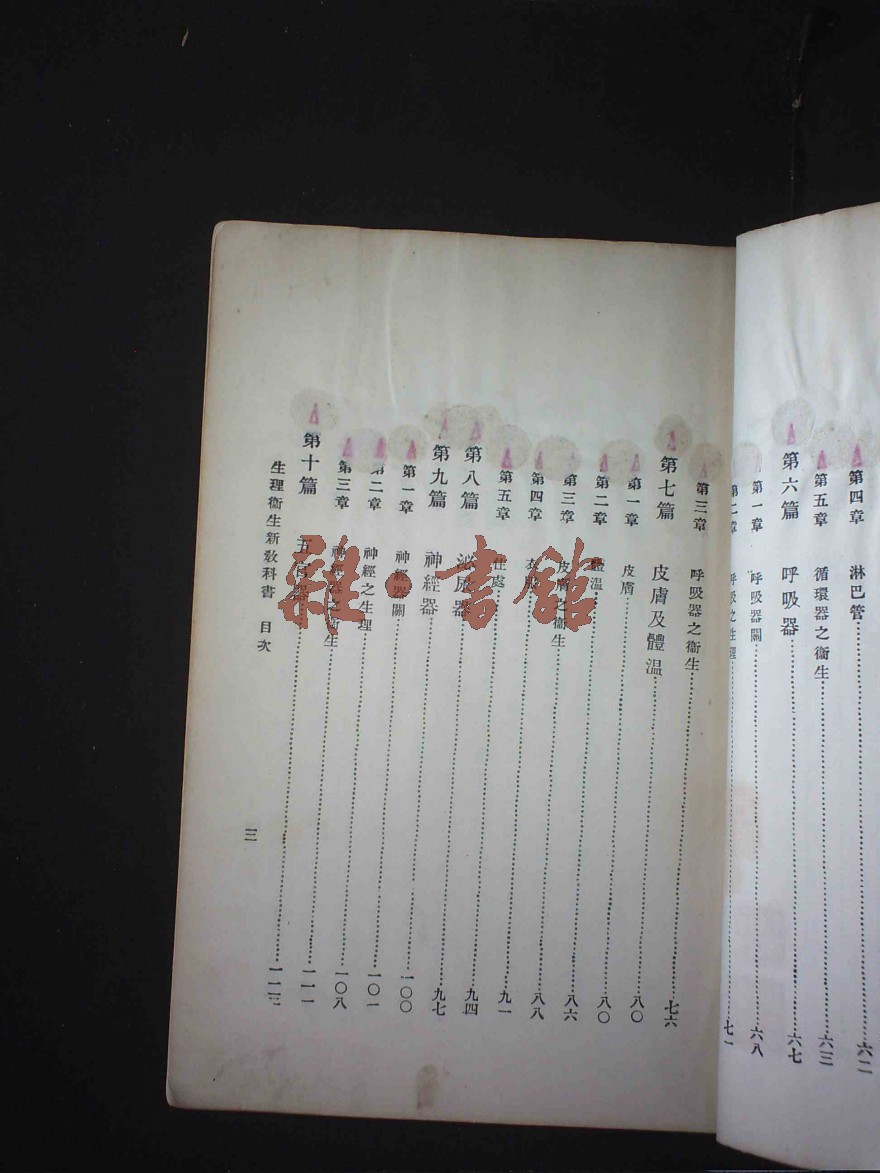 第四章 淋巴管…………六二
第五章 循環器之衞生…………六三
第六篇 呼吸器…………六七
第一章 呼吸器關…………六八
第二章 呼吸之生理…………七一
第三章 呼吸器之衞生…………七六
第七篇 皮膚及體温…………八〇
第一章 皮膚…………八〇
第二章 體温…………八六
第三章 皮膚之衞生…………八八
第四章 衣服…………九一
第五章 住處…………九四
第八篇 泌尿器…………九七
第九篇 神經器…………一〇〇
第一章 神經器關…………一〇一
第二章 神經之生理…………一〇八
第三章 神經器之衞生…………一一一
第十篇 五官器…………一一三
生理衞生新教科書 目次 三
雜·書館